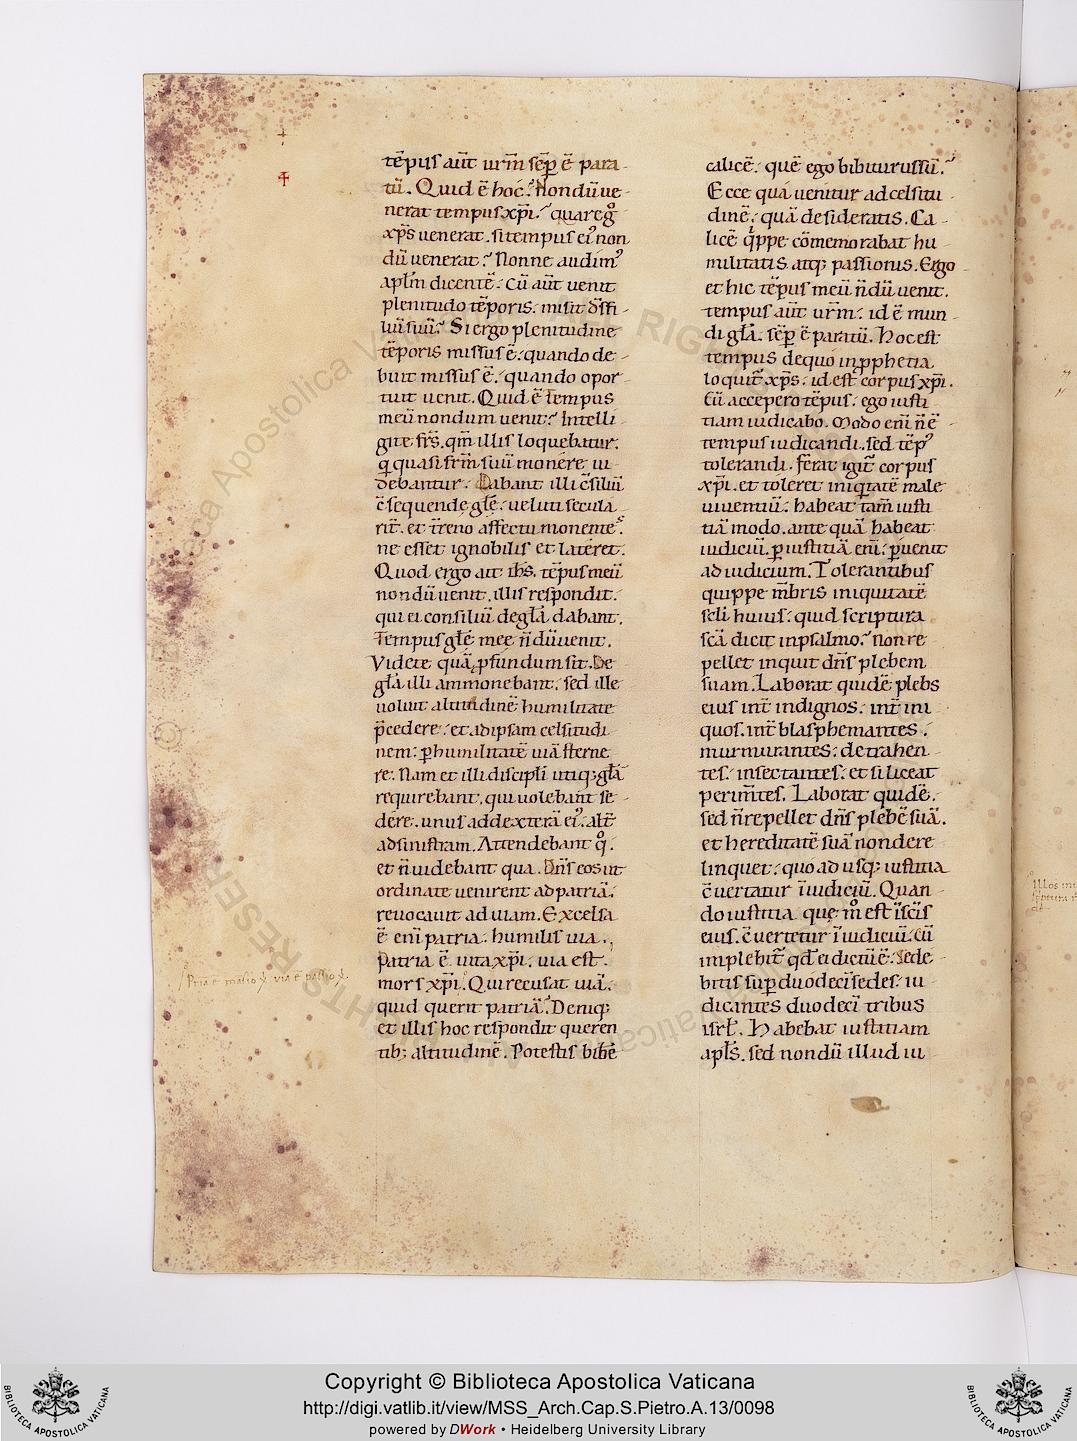 tēpus aūt ur̄m sēp ē para-
tū. Quid ē hoc? Nondū ue-
nerat tempus xp̄i? quare g̊
xp̄s uenerat. si tempus ei' non
dū uenerat? Nonne audim'
ap̄lm dicentē: Cū aūt uenit
plenitudo tēporis: misit d̄s fi-
liū suū? Si ergo plenitudine
tēporis missus ē: quando de-
buit missus ē: quando opor-
tuit uenit. Quid ē tempus
meū nondum uenit? Intelli-
gite fr̄s. qm̄ illis loquebatur:
q̄ quasi fr̄m suū monere ui-
debantur. Dabant illi c̄siliū
c̄sequende gl̄e: ueluti secula-
rit̄. et t̄reno affectu monentes.
ne esset ignobilis et lateret.
Quod ergo ait ih̄s. tēpus meū
nondū uenit. illis respondit.
qui ei consiliū de gl̄a dabant.
Tempus gl̄e mee n̄dū uenit.
Videte quā pfundum sit. De
gl̄a illi ammonebant. sed ille
uoluit altitudinē humilitate
p̄cedere: et ad ipsam celsitudi-
nem: p̱ humilitatē uiā sterne-
re. Nam et illi discipli utiq; gl̄a
requirebant. qui uolebant se-
dere. unus ad dexterā ei'. alt̄
ad sinistram. Attendebant q̊.
et n̄ uidebant qua. Dn̄s eos ut
ordinate uenirent ad patriā.
reuocauit ad uiam. Excelsa
ē eni patria. humilis uia.
Patria ē uita xp̄i. uia est
mors xp̄i. Qui recusat uiā.
quid querit patriā? Deniq;
et illis hoc respondit queren-
tib; altitudinē. Potestis bibē
calicē: quē ego bibiturus sū?
Ecce quā uenitur ad celsitu-
dinē: quā desideratis. Ca-
licē q̇ppe cōmemorabat hu-
militatis atq; passionis. Ergo
et hic tēpus meū n̄dū uenit.
tempus aūt ur̄m: id ē mun-
di gl̄a. sēp ē paratū. Hoc est
tempus de quo in pphetia
loquit̄ xp̄s: id est corpus xp̄i.
Cū accepero tēpus: ego iusti-
tiam iudicabo. Modo eni n̄ ē
tempus iudicandi. sed tēp'
tolerandi. ferat igit̄ corpus
xp̄i. et toleret iniq̇tatē male
uiuentiū: habeat tam̄ iusti-
tiā modo. ante quā habeat
iudiciū. p̱ iustitiā eni: p̱uenit
ad iudicium. Tolerantibus
quippe m̄bris iniquitatē
sc̄li huius: quid scriptura
sc̄a dicit in psalmo? Non re-
pellet inquit dn̄s plebem
suam. Laborat quidē plebs
eius int̄ indignos: int̄ ini-
quos. int̄ blasphemantes:
murmurantes: detrahen-
tes: insectantes: et si liceat
perim̄tes. Laborat quidē:
sed n̄ repellet dn̄s plebē suā.
et hereditatē suā non dere-
linquet: quo ad usq; iustitia
c̄uertatur ī iudiciū. Quan-
do iustitia que m̊ est ī sc̄is
eius. c̄uertetur ī iudiciū: cū
implebit̄ qd̄ ei dictū ē: Sede-
bitis sup̄ duodecī sedes: iu-
dicantes duodecī tribus
isrl̄. Habebat iustitiam
apl̄s. sed nondū illud iu-
Pr̄ia ē mansio x̄. via ē passio x̄.
Copyright © Biblioteca Apostolica Vaticana
http://digi.vatlib.it/view/MSS_Arch.Cap.S.Pietro.A.13/0098
powered by DWork • Heidelberg University Library
BIBLIOTECA APOSTOLICA VATICANA
BIBLIOTECA APOSTOLICA VATICANA